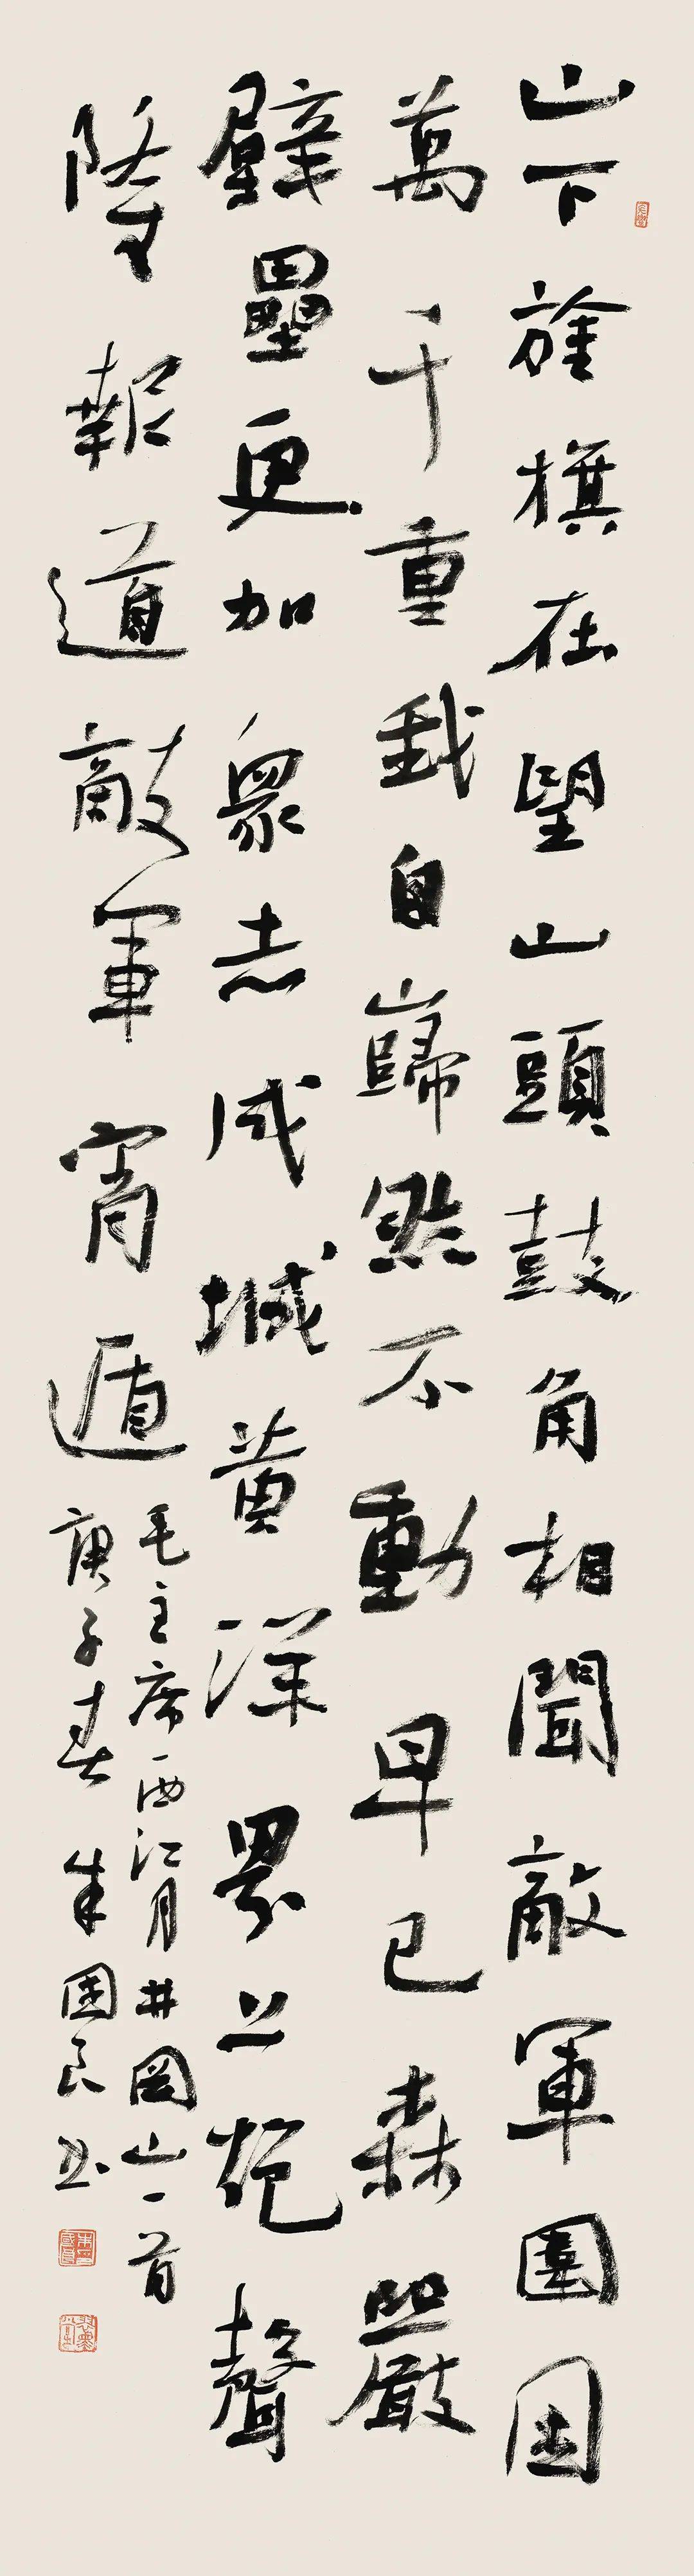 山下旌旗在望山頭鼓角相聞敵軍圍困
萬千重我自巋然不動早已森嚴
壁壘更加眾志成城黃洋界上炮聲
隆報道敵軍宵遁
毛主席西江月井岡山一首
庚子春朱國良書